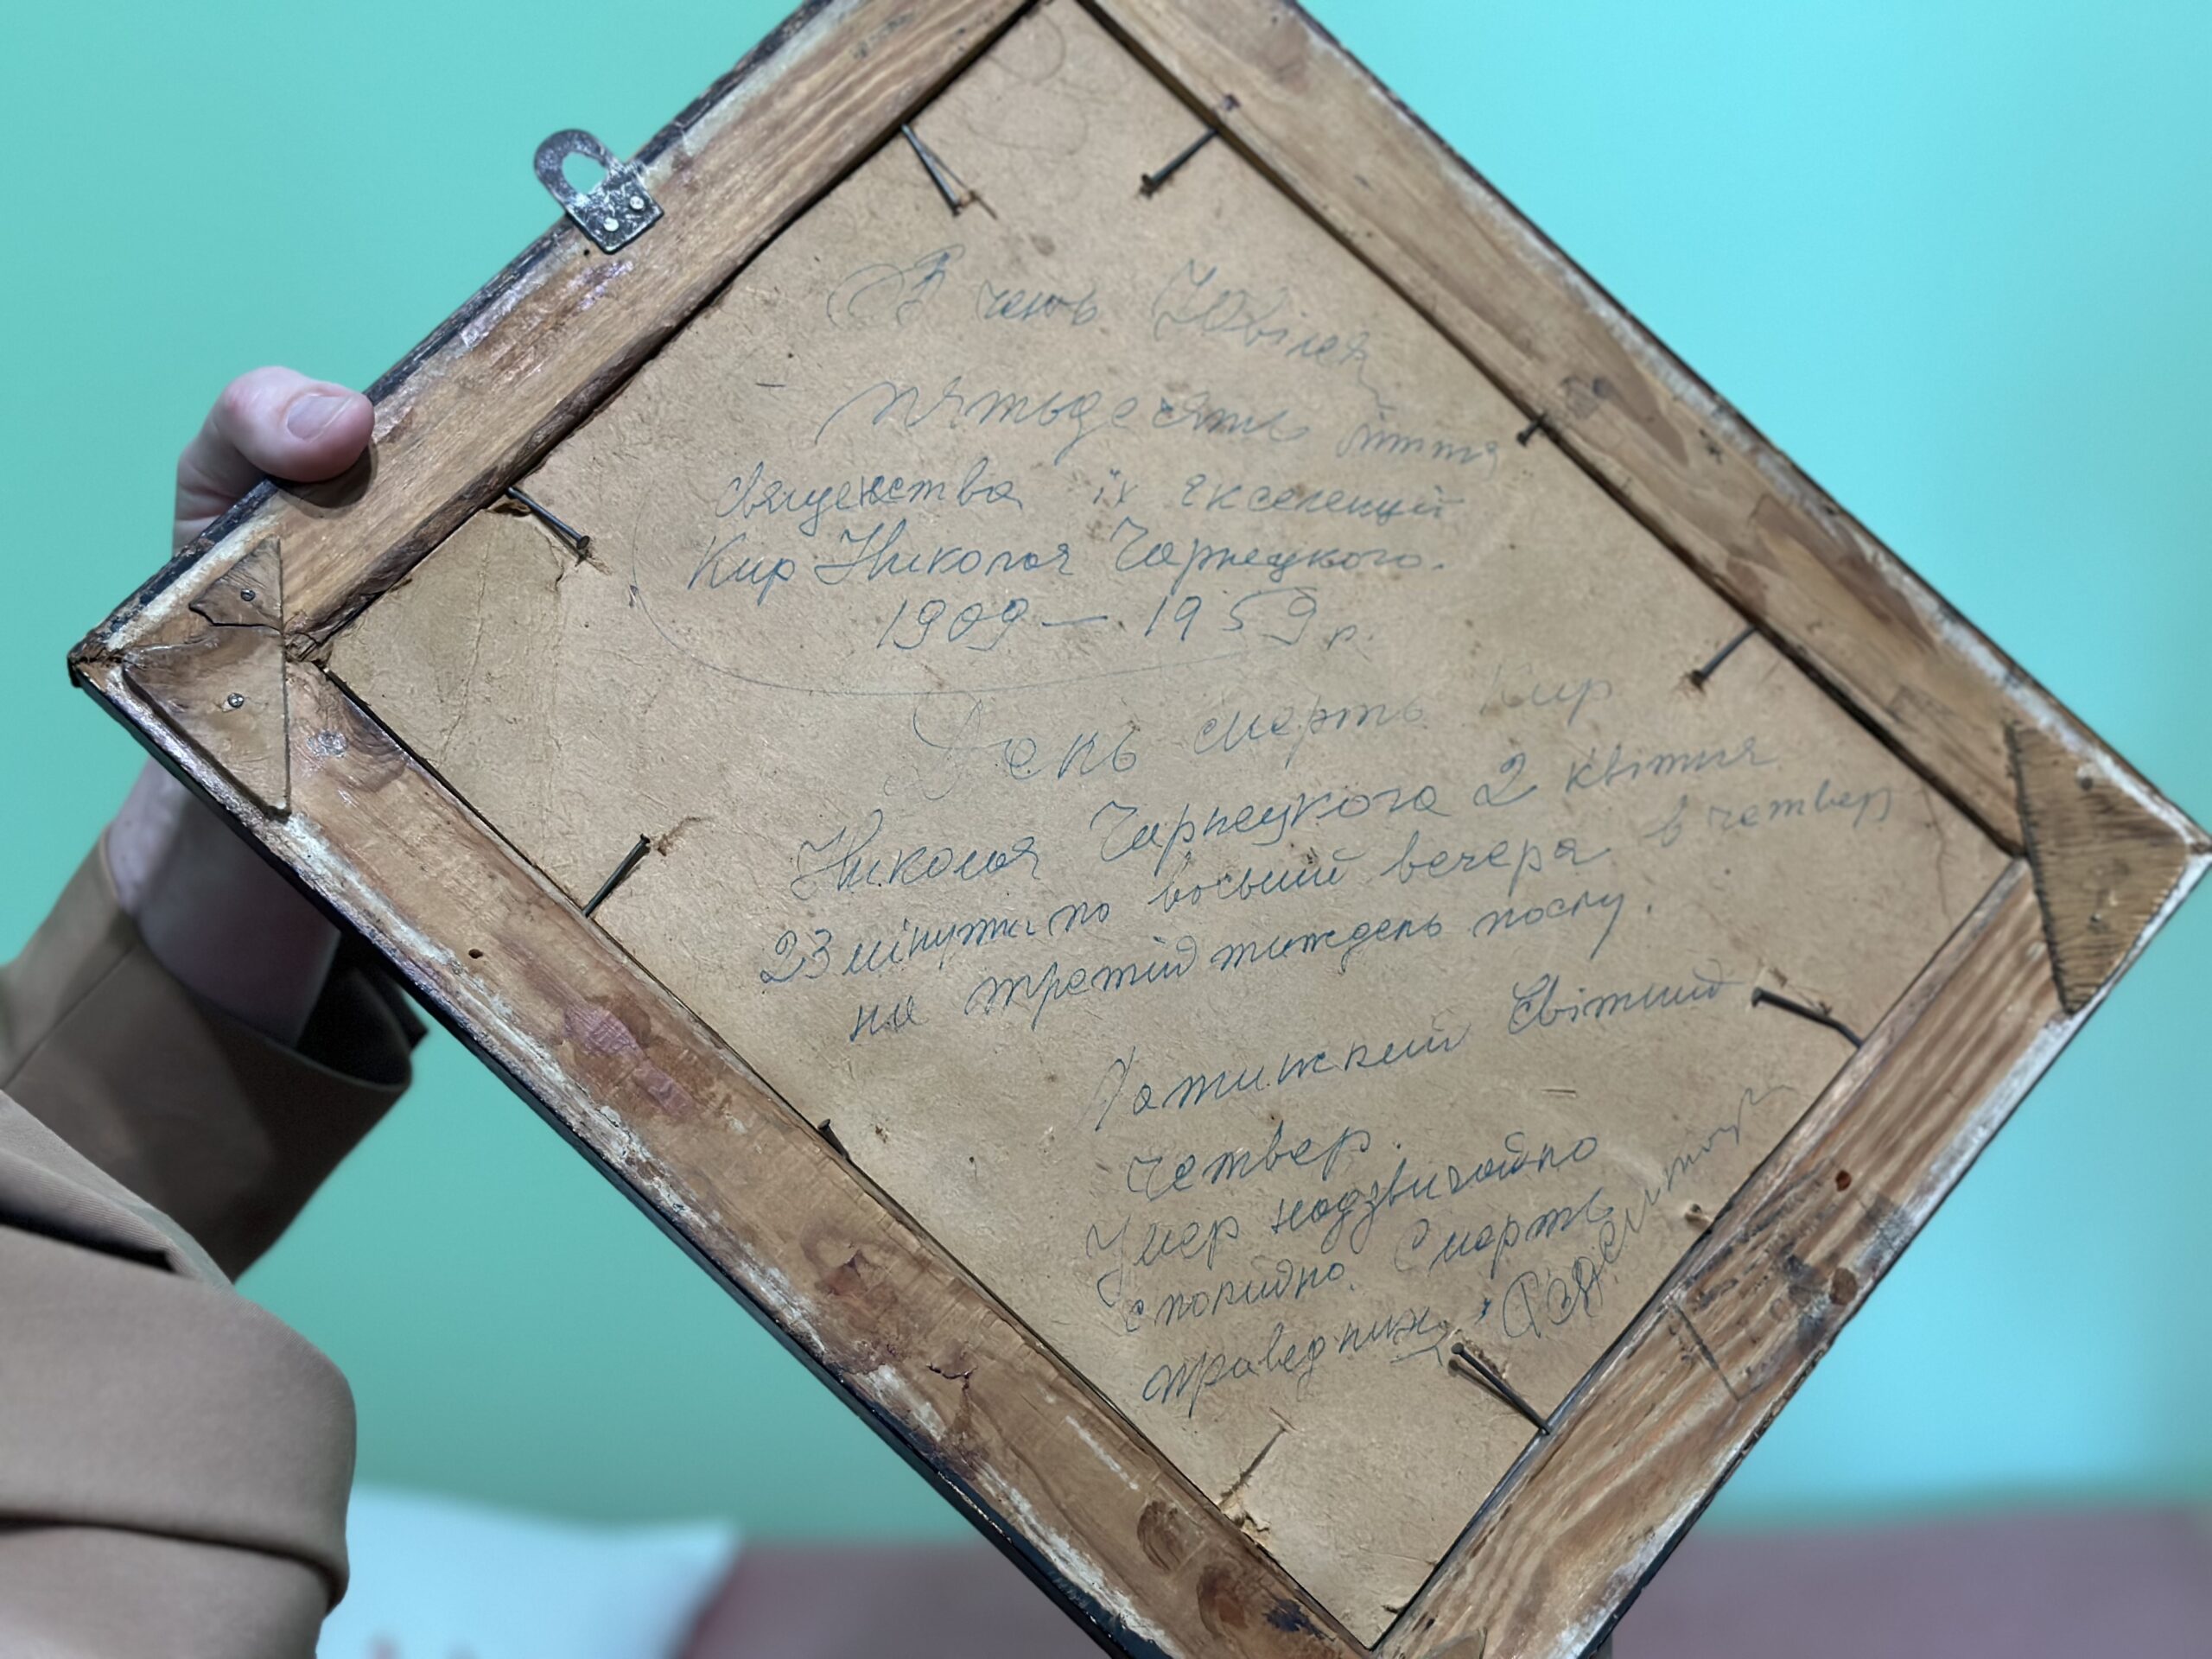 В честь Ювілея
пятьдесять ліття
священства їх екселенції
Кир Николая Чарнецкого.
1909 — 1959 р.
День смерть Кир
Николая Чарнецкого 2 квітня
23 мінути по восьмій вечера в четвер
на третій тиждень посту.
Латинский Світлий
Четвер.
Умер надзвичайно
спокидно. Смерть
праведних.